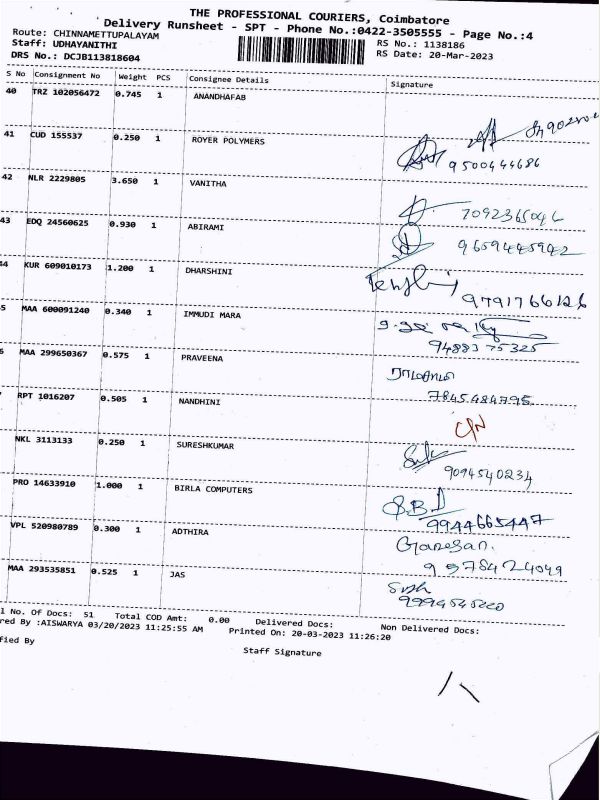 THE PROFESSIONAL COURIERS, Coimbatore
Delivery Runsheet - SPT - Phone No.:0422-3505555 - Page No.:4
Route: CHINNAMETTUPALAYAM
Staff: UDHAYANITHI
DRS No.: DCJB113818604
RS No.: 1138186
RS Date: 20-Mar-2023
S No Consignment No Weight PCS Consignee Details Signature
40 TRZ 102056472 0.745 1 ANANDHAFAB
41 CUD 155537 0.250 1 ROYER POLYMERS
9500444686
42 NLR 2229805 3.650 1 VANITHA
7092365046
43 EDQ 24560625 0.930 1 ABIRAMI
9659445942
44 KUR 609010173 1.200 1 DHARSHINI
9791766126
5 MAA 600091240 0.340 1 IMMUDI MARA
9488375325
6 MAA 299650367 0.575 1 PRAVEENA
7845484795
7 RPT 1016207 0.505 1 NANDHINI
C/N
NKL 3113133 0.250 1 SURESHKUMAR
9094540234
PRO 14633910 1.000 1 BIRLA COMPUTERS
S.B.D
9944665447
VPL 520980789 0.300 1 ADTHIRA
Ganesan.
9578424049
MAA 293535851 0.525 1 JAS
9994545220
l No. Of Docs: 51 Total COD Amt: 0.00 Delivered Docs: Non Delivered Docs:
red By :AISWARYA 03/20/2023 11:25:55 AM Printed On: 20-03-2023 11:26:20
fied By Staff Signature